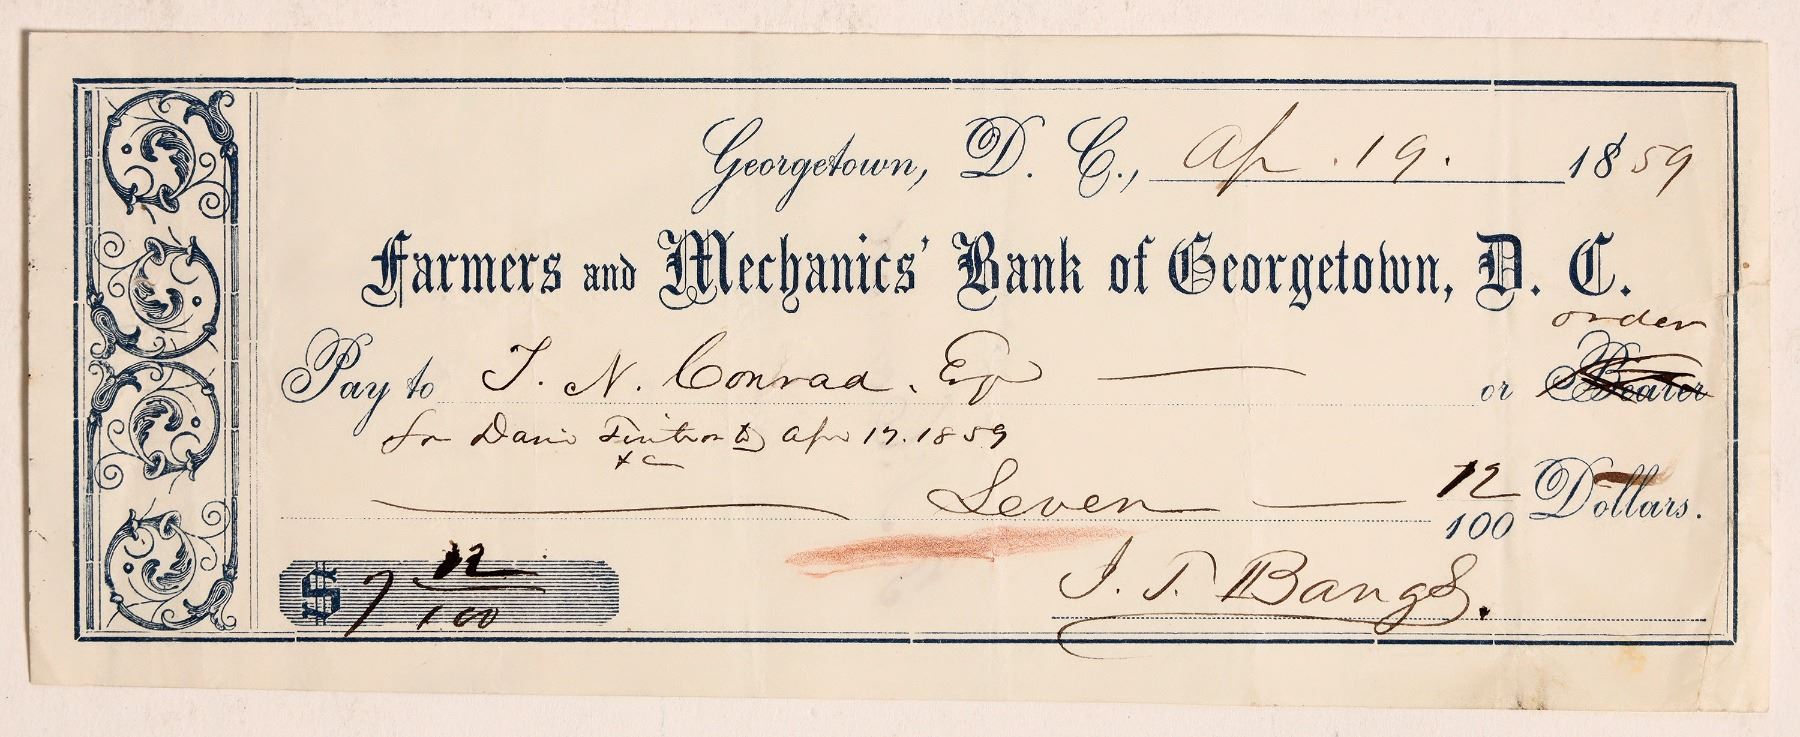 Georgetown, D. C., Ap. 19. 1859
Farmers and Mechanics' Bank of Georgetown, D. C.
order
Pay to T. N. Conrad, Esqr or Bearer
for Tuition to Apr 17. 1859
&c
Seven 12/100 Dollars.
$7 12/100
J. T. Bangs.